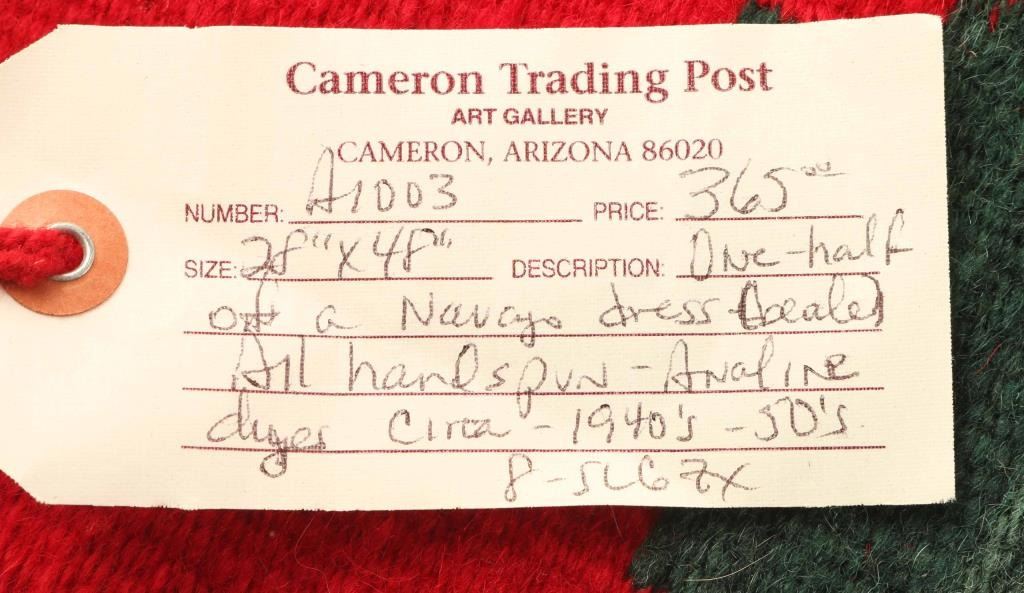 Cameron Trading Post
ART GALLERY
CAMERON, ARIZONA 86020
NUMBER: A1003 PRICE: 365.00
SIZE: 28" x 48" DESCRIPTION: One-half
of a Navajo dress
All handspun - Analine
dyes Circa - 1940's - 50's